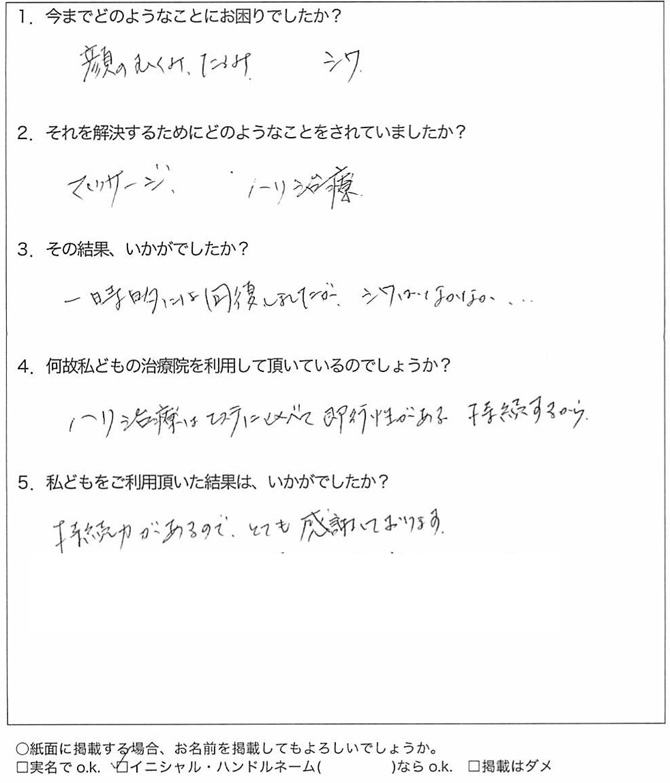 1．今までどのようなことにお困りでしたか？
顔のむくみ、たるみ、シワ
2．それを解決するためにどのようなことをされていましたか？
マッサージ、ハリ治療
3．その結果、いかがでしたか？
一時的には回復しましたが、シワはなかなか、...
4．何故私どもの治療院を利用して頂いているのでしょうか？
ハリ治療はエステに比べて即行性がある 持続するから
5．私どもをご利用頂いた結果は、いかがでしたか？
持続力があるので、とても感謝しております。
○紙面に掲載する場合、お名前を掲載してもよろしいでしょうか。
□実名でo.k. □イニシャル・ハンドルネーム( )ならo.k. □掲載はダメ